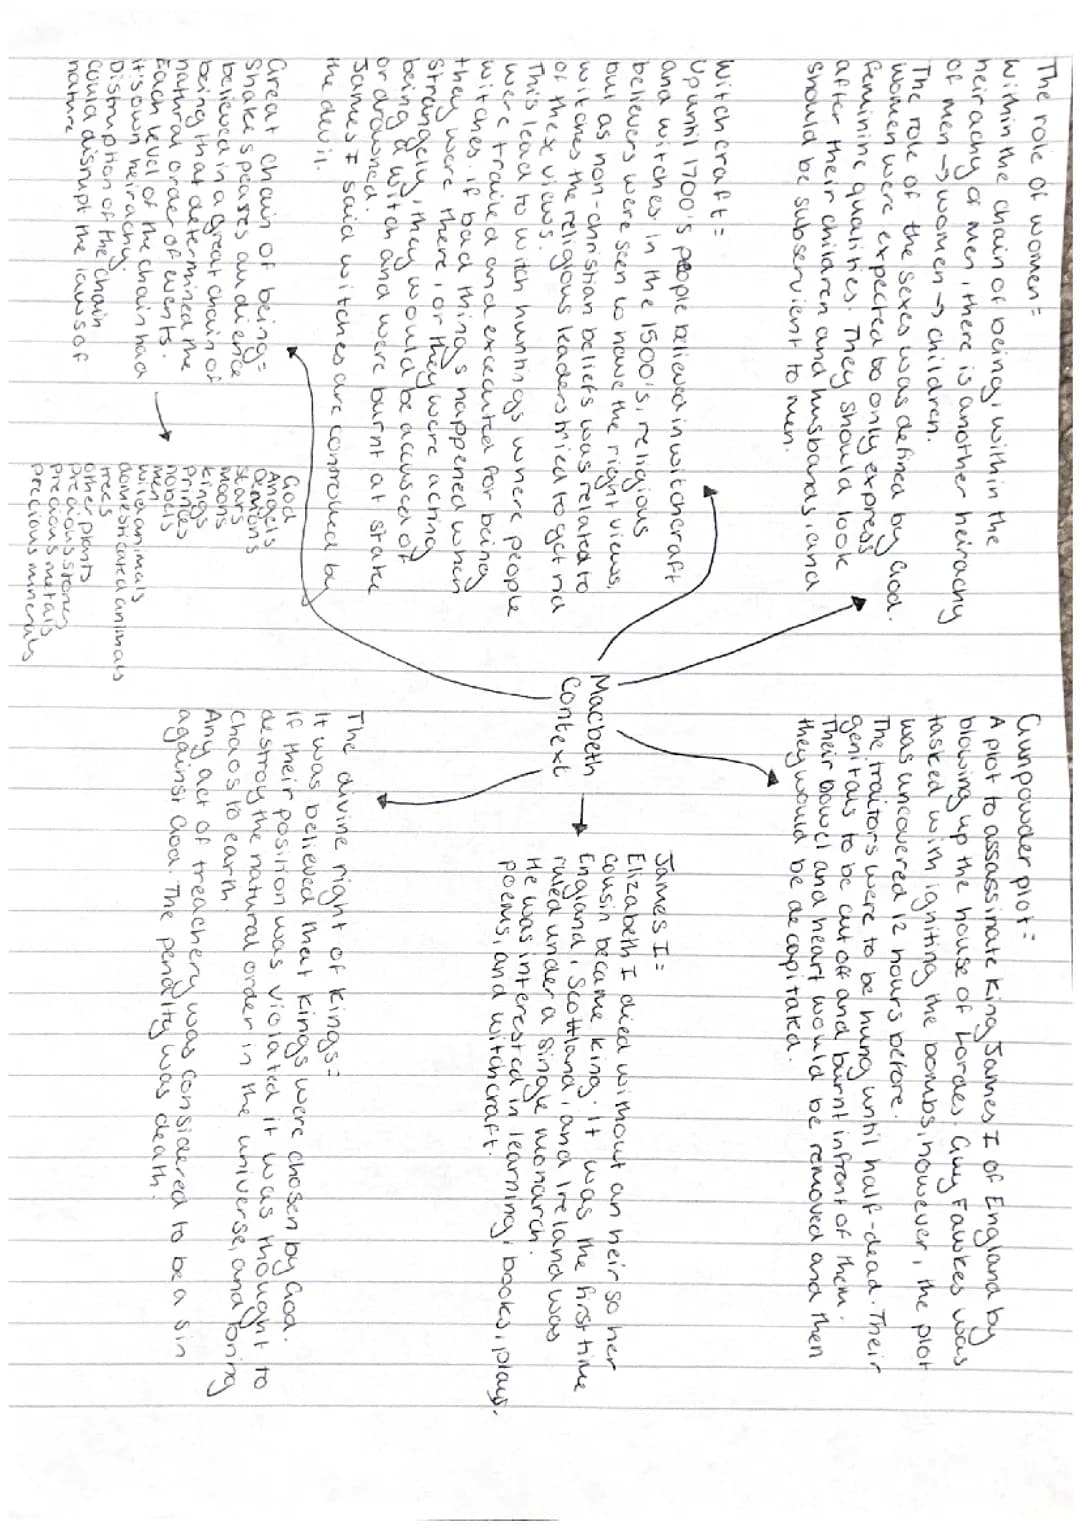 The role of women=
Within the chain of being, within the
heirachy of men, there is another heirachy
of men → women → children.
The role of the sexes was defined by God.
women were expected to only express
feminine qualities. They should look
after their children and husbands, and
should be subservient to men.
Witchcraft=
Up until 1700's people believed in witchcraft
and witches. in the 1500's, religious
believers were seen to have the right views,
but as non-christian beliefs was related to
witches the religious leaders tried to get rid
of these views.
This lead to witch huntings where people
were trailed and executed for being
witches. if bad things happened when
they were there, or they were acting
strangely, they would be accused of
being a witch and were burnt at stake
or drowned.
James I said witches are controlled by
the devil.
Great chain of being=
Shakespeares audience
believed in a great chain of
being that determined the
natural order of events.
Each level of the chain had
it's own heirachy.
Distruption of the chain
could disrupt the laws of
nature
God
Angels
Demons
stars
moons
kings
princes
nobels
men
wild animals
domesticated animals
trees
other plants
precious stones
precious metals
precious minerals
Macbeth
Context
Gunpowder plot=
A plot to assassinate King James I of England by
blowing up the house of Lordes. Guy Fawkes was
tasked with igniting the bombs, however, the plot
was uncovered 12 hours before.
The traitors were to be hung until half-dead. Their
genitals to be cut off and burnt infront of them.
Their bowel and heart would be removed and then
they would be decapitated.
James I=
Elizabeth I died without an heir so her
cousin became king. It was the first time
England, Scottland, and Ireland was
ruled under a single monarch.
He was interested in learning, books, plays,
poems, and witchcraft.
The divine right of kings=
It was believed that kings were chosen by God.
if their position was violated it was thought to
destroy the natural order in the universe, and bring
chaos to earth.
Any act of treachery was considered to be a sin
against God. The penality was death.